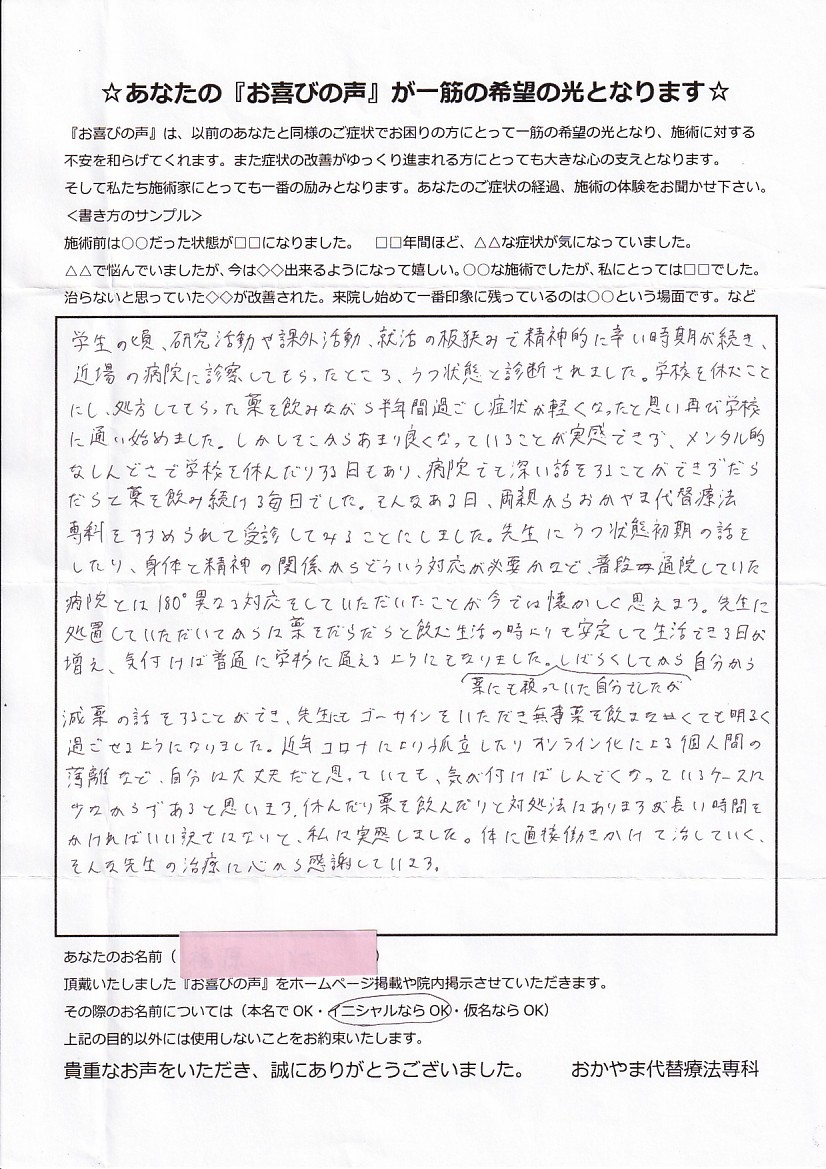 ☆あなたの『お喜びの声』が一筋の希望の光となります☆
『お喜びの声』は、以前のあなたと同様のご症状でお困りの方にとって一筋の希望の光となり、施術に対する
不安を和らげてくれます。また症状の改善がゆっくり進まれる方にとっても大きな心の支えとなります。
そして私たち施術家にとっても一番の励みとなります。あなたのご症状の経過、施術の体験をお聞かせ下さい。
＜書き方のサンプル＞
施術前は○○だった状態が□□になりました。　□□年間ほど、△△な症状が気になっていました。
△△で悩んでいましたが、今は◇◇出来るようになって嬉しい。○○な施術でしたが、私にとっては□□でした。
治らないと思っていた◇◇が改善された。来院し始めて一番印象に残っているのは○○という場面です。など
学生の頃、研究活動や課外活動、就活の板狭みで精神的に辛い時期が続き、
近場の病院に診察してもらったところ、うつ状態と診断されました。学校を休むこと
にし、処方してもらった薬を飲みながら半年間過ごし症状が軽くなったと思い再び学校
に通い始めました。しかしそこからあまり良くなっていることが実感できず、メンタル的
なしんどさで学校を休んだりする日もあり、病院でも深い話をすることができずだら
だらと薬を飲み続ける毎日でした。そんなある日、両親からおかやま代替療法
専科をすすめられて受診してみることにしました。先生にうつ状態初期の話を
したり、身体と精神の関係からどういう対応が必要かなど、普段通院していた
病院とは180°異なる対応をしていただいたことが今では懐かしく思えます。先生に
処置していただいてからは薬をだらだらと飲む生活の時よりも安定して生活できる日が
増え、気付けば普通に学校に通えるようにもなりました。しばらくしてから自分から
薬にも頼っていた自分でしたが
減薬の話をすることができ、先生にもゴーサインをいただき無事薬を飲まなくても明るく
過ごせるようになりました。近年コロナにより孤立したりオンライン化による個人間の
薄離など、自分は大丈夫だと思っていても、気が付けばしんどくなっているケースは
少なからずあると思います。休んだり薬を飲んだりと対処法はありますが長い時間を
かければいい訳ではないと、私は実感しました。体に直接働きかけて治していく、
そんな先生の治療に心から感謝しています。
あなたのお名前（　）
頂戴いたしました『お喜びの声』をホームページ掲載や院内掲示させていただきます。
その際のお名前については（本名でOK・イニシャルならOK・仮名ならOK）
上記の目的以外には使用しないことをお約束いたします。
貴重なお声をいただき、誠にありがとうございました。　おかやま代替療法専科